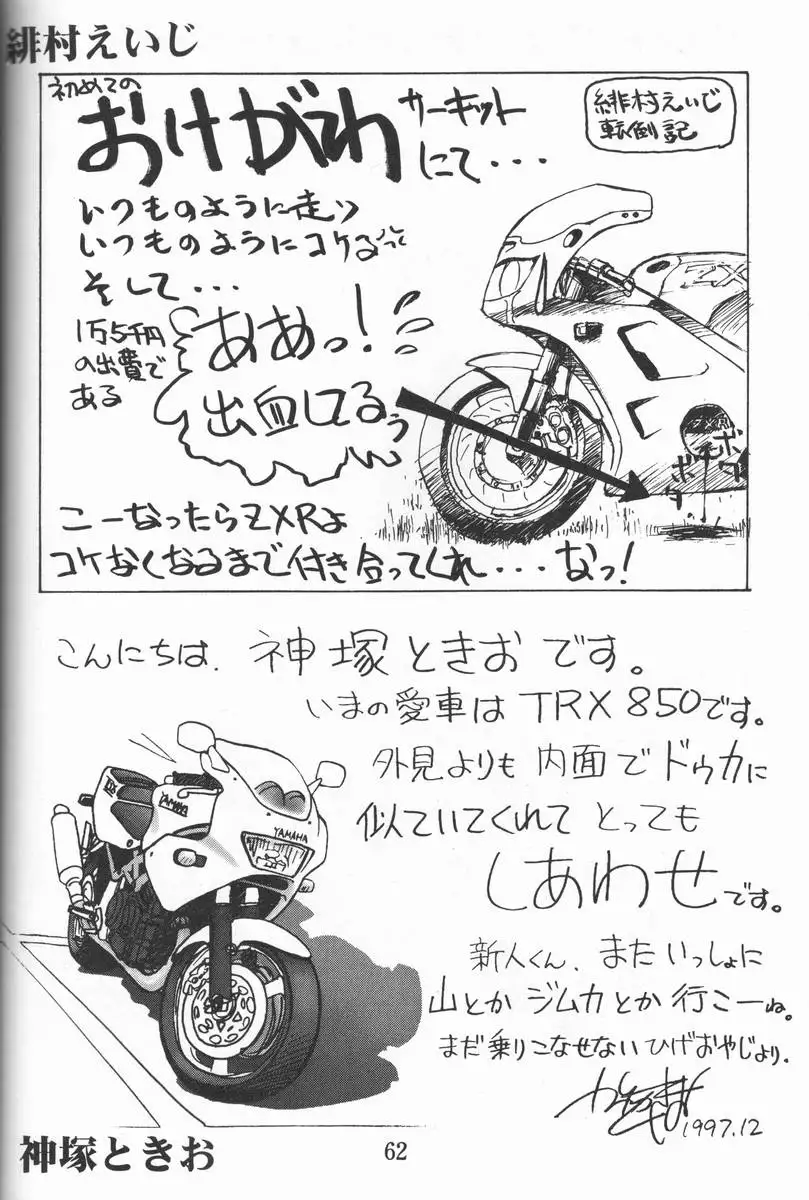 緋村えいじ
緋村えいじ
転倒記
初めての
おけがわ サーキット
にて・・・
いつものように走り
いつものようにコケるって
そして・・・
1万5千円
の出費で
ある
ああっ!
出血してるぅ
ZXR
ボタ
ボタ
こーなったらZXRよ
コケなくなるまで付き合ってくれ・・・なっ!
こんにちは、神塚ときおです。
いまの愛車はTRX850です。
外見よりも内面でドゥカに
似ていてくれてとっても
しあわせです。
YAMAHA
YAMAHA
新人くん、またいっしょに
山とかジムカとか行こーね。
まだ乗りこなせないひげおやじより。
1997.12
神塚ときお
62